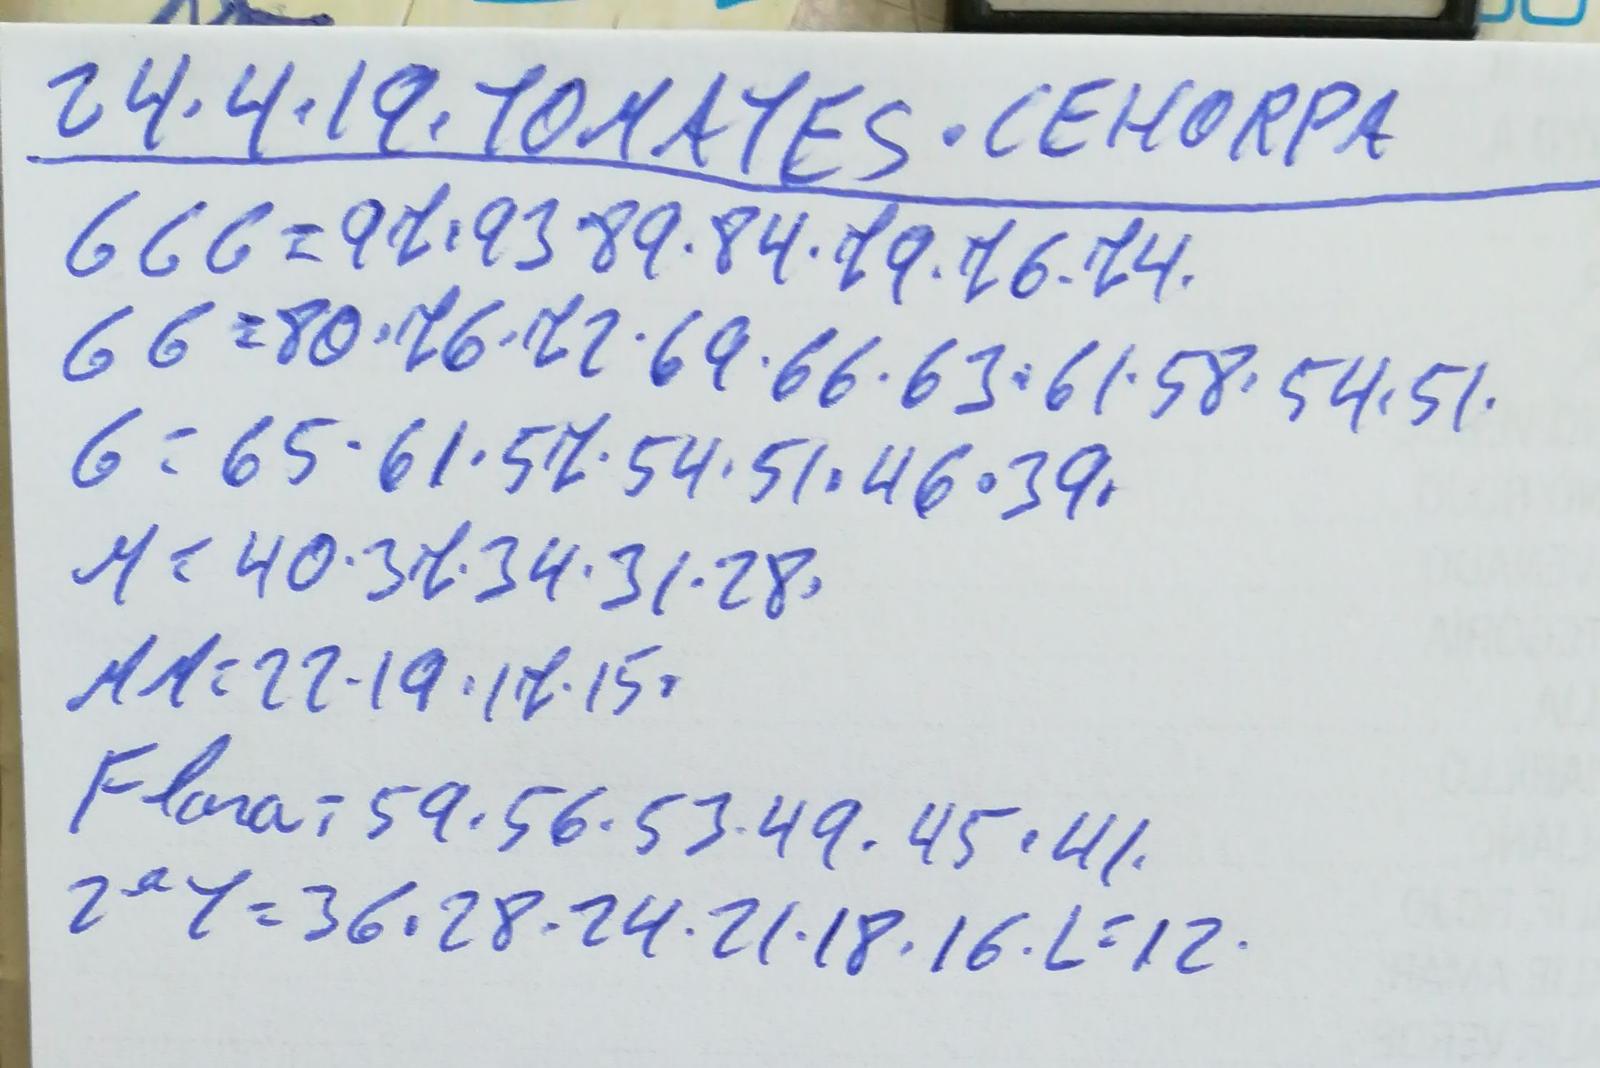 24.4.19. TOMATES. CEHORPA
GGG = 97.93.89.84.79.76.74.
GG = 80.76.72.69.66.63.61.58.54.51.
G = 65.61.57.54.51.46.39.
M = 40.37.34.31.28.
MM = 22.19.17.15.
Flora = 59.56.53.49.45.41.
2ªT = 36.28.24.21.18.16.L=12.